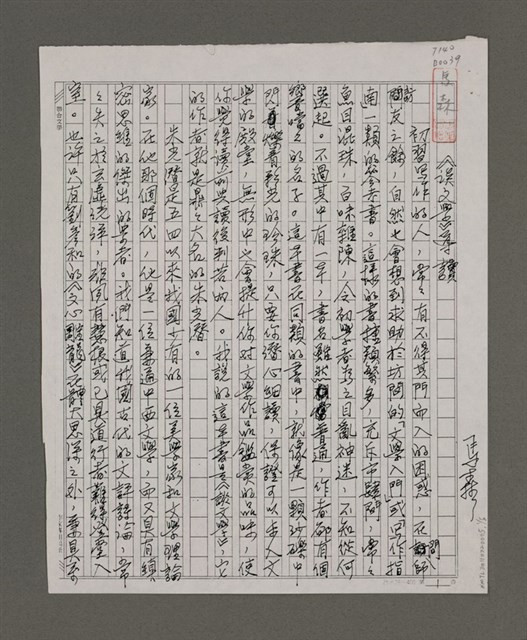 7142
D0039
談文學導讀
馬森
初習寫作的人，常常有不得其門而入的困惑，在問師
討友之餘，自然也會想到求助於坊間的「文學入門」或「寫作指
南」一類的參考書。這樣的書種類繁多，充斥市肆間，常常
魚目混珠，百味雜陳，令初學者為之目亂神迷，不知從何
選起。不過其中有一本，書名雖然普通，作者卻有個
響噹噹的名子。這本書在同類的書中，就像是一顆沙礫中
閃耀光的珍珠，只要你潛心細讀，保證可以步入文
學的殿堂，無形中也會提升你對文學作品鑑賞的品味，使
你覺得讀前與讀後判若兩人。我說的這本書是《談文學》，它
的作者就是鼎鼎大名的朱光潛。
朱光潛是五四以來我國少有的一位美學家和文學理論
家。在他那個時代，他是一位兼通中西文學，而又具有縝
密思維的傑出的學者。我們知道我國古代的文評詩論，常
常失之於玄虛洸洋，頗使有慧根或已具道行者難得登堂入
室。也許只有劉彥和的《文心雕龍》花體大思深之外，
1